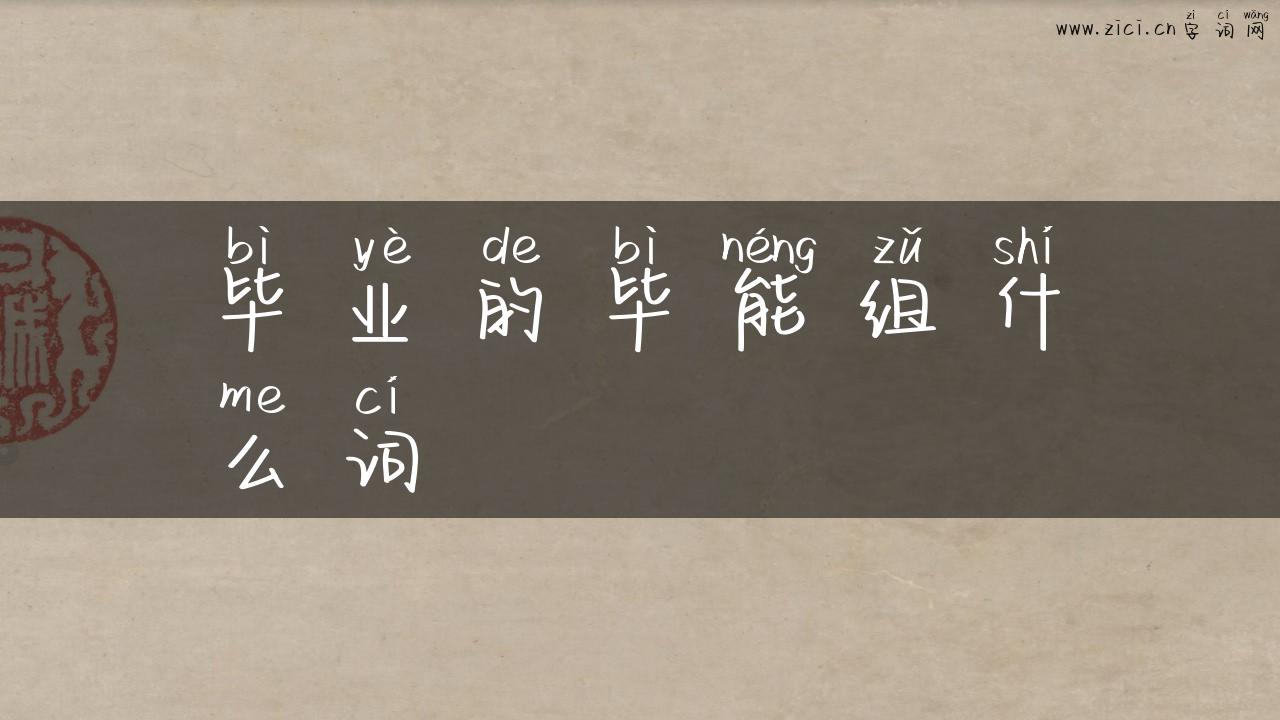 zì cí wǎng
www.zici.cn字词网
bì yè de bì néng zǔ shí
毕业的毕能组什
me cí
么词